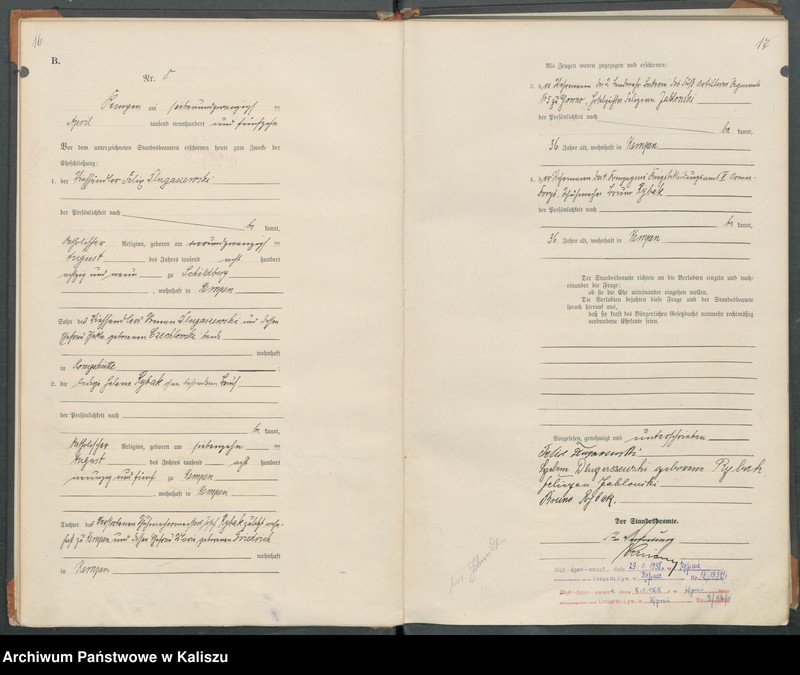 16
B.
Nr. 8
Kempen am siebenundzwanzigsten
April tausend neunhundert und fünfzehn
Vor dem unterzeichneten Standesbeamten erschienen heute zum Zwecke der
Eheschließung:
1. der Viehhändler Felix Dlugaszewski
der Persönlichkeit nach
be kannt,
katholischer Religion, geboren am neunundzwanzigsten
August des Jahres tausend acht hundert
achtzig und neun zu Schildberg
, wohnhaft in Kempen
Sohn des Viehhändlers Roman Dlugaszewski und dessen
Ehefrau geborenen Czechlowski beide
wohnhaft
in
2. die ledige Helene Rybak ohne besonderen Beruf
der Persönlichkeit nach
be kannt,
katholischer Religion, geboren am siebenzehnten
August des Jahres tausend acht hundert
neunzig und fünf zu Kempen
, wohnhaft in Kempen
Tochter des verstorbenen Schuhmachermeisters Rybak zuletzt wohn-
haft zu Kempen und dessen Ehefrau Maria geborenen Friedrich
wohnhaft
in Kempen
17
Als Zeugen waren zugezogen und erschienen:
3. der Wehrmann der 2. Landwehr Batterie des Fuß Artillerie Regiments
No 5 zu Posen, Felizian Jablonski
der Persönlichkeit nach
be kannt,
36 Jahre alt, wohnhaft in Kempen
4. der Wehrmann der 4. Kompagnie Kriegsbekleidungsamt V. Armee-
korps Schuhmacher Bruno Rybak
der Persönlichkeit nach
be kannt,
36 Jahre alt, wohnhaft in Kempen
Der Standesbeamte richtete an die Verlobten einzeln und nach-
einander die Frage:
ob sie die Ehe miteinander eingehen wollen.
Die Verlobten bejahten diese Frage und der Standesbeamte
sprach hierauf aus,
daß sie kraft des Bürgerlichen Gesetzbuchs nunmehr rechtmäßig
verbundene Eheleute seien.
Vorgelesen, genehmigt und unterschrieben
Felix Dlugaszewski
Helene Dlugaszewski geborene Rybak
Felizian Jablonski
Bruno Rybak.
Der Standesbeamte.
In Vertretung
Archiwum Państwowe w Kaliszu